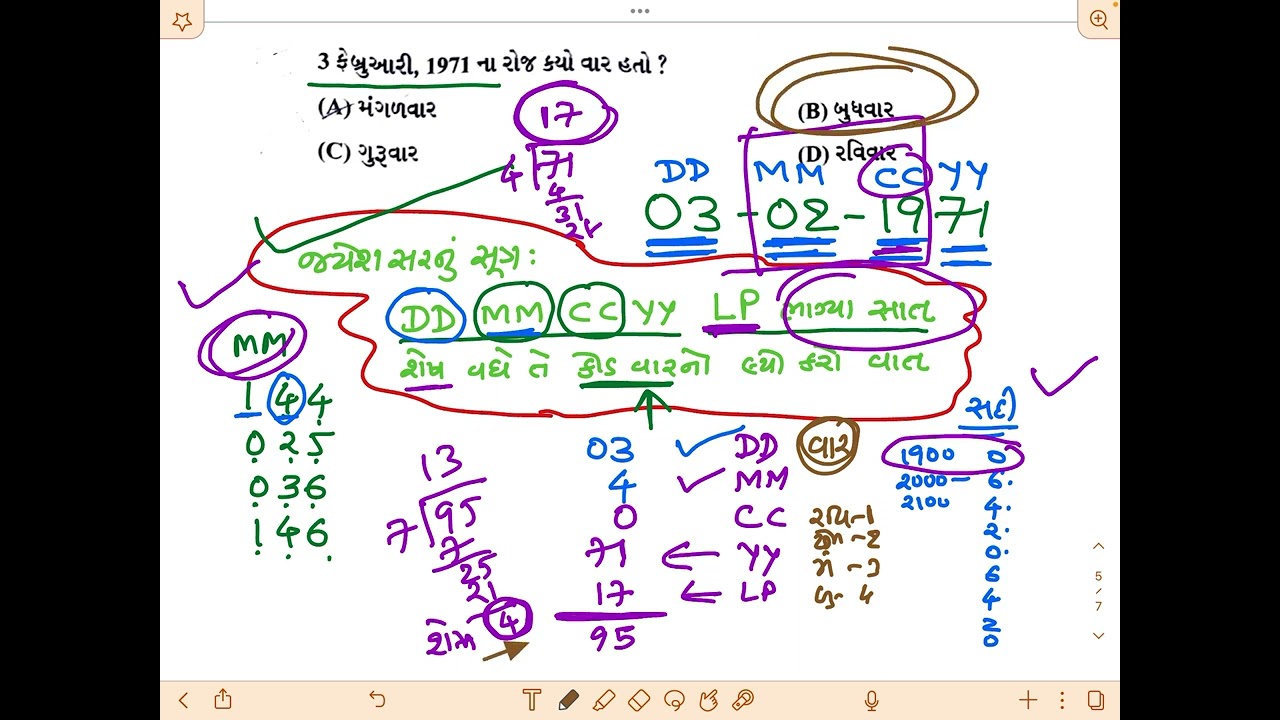 3 ફેબ્રુઆરી, 1971 ના રોજ કયો વાર હતો ?
(A) મંગળવાર
(B) બુધવાર
(C) ગુરૂવાર
(D) રવિવાર
17
4 71
4
31
28
DD MM CC YY
03 - 02 - 1971
જયેશ સરનું સૂત્ર :
DD MM CC YY LP ભાગ્યા સાત
શેષ વધે તે કોડ વારનો કરો વાત
MM
1 4 4
0 2 5
0 3 6
1 4 6
13
7 95
7
25
21
શેષ 4
03 DD
4 MM
0 CC
71 YY
17 LP
95
વાર
રવિ-1
સોમ-2
મં-3
બુ-4
સદી
1900 0
2000 - 6.
2100 4.
2.
0.
6
4
2
0
5
/
7
T